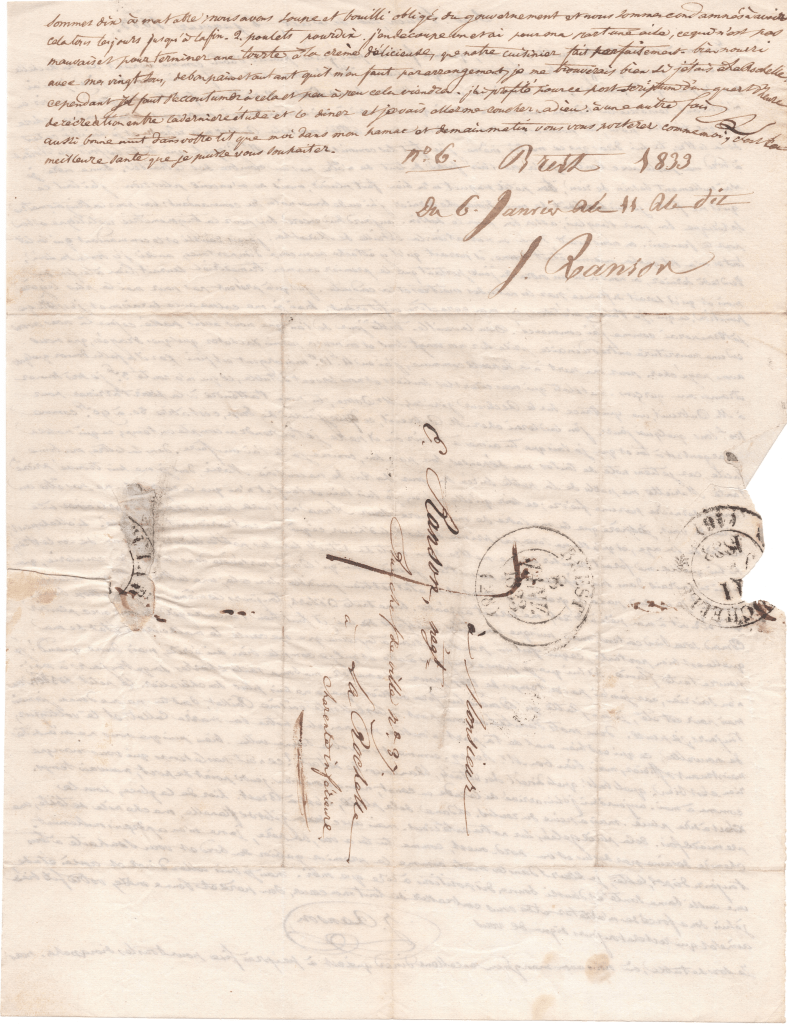 sommes dix à ma table, nous avons soupe et bouilli obligés du gouvernement et nous sommes condamnés à avoir
cela tous toujours jusqu'à la fin. 2. poulets pour dix. j'en découpe un et ai pour ma part une aile, ce qui n'est pas
mauvais et pour terminer une tourte à la crème délicieuse, que notre cuisinier fait parfaitement. bien nourri
avec mes vingt sous, de bon pain et autant qu'il m'en faut par arrangement, je me trouverais bien si j'étais à
cependant il faut s'accoutumer à cela et peu à peu cela viendra. j'ai profité pour ce post scriptum d'un quart d'heure
de récréation entre la dernière étude et le dîner et je vais aller me coucher. adieu. à une autre fois
aussi bonne nuit dans votre lit que moi dans mon hamac et demain matin vous vous porterez comme moi, c'est la
meilleure santé que je puisse vous souhaiter.
n.º 6. Brest 1833
Du 6. Janvier
J. Ranson
à Monsieur
E. Ranson, négt.
n.º 37.
à La Rochelle
charente inférieure.
BREST
(28)
8
JANV.
1833
11
1833
(16)